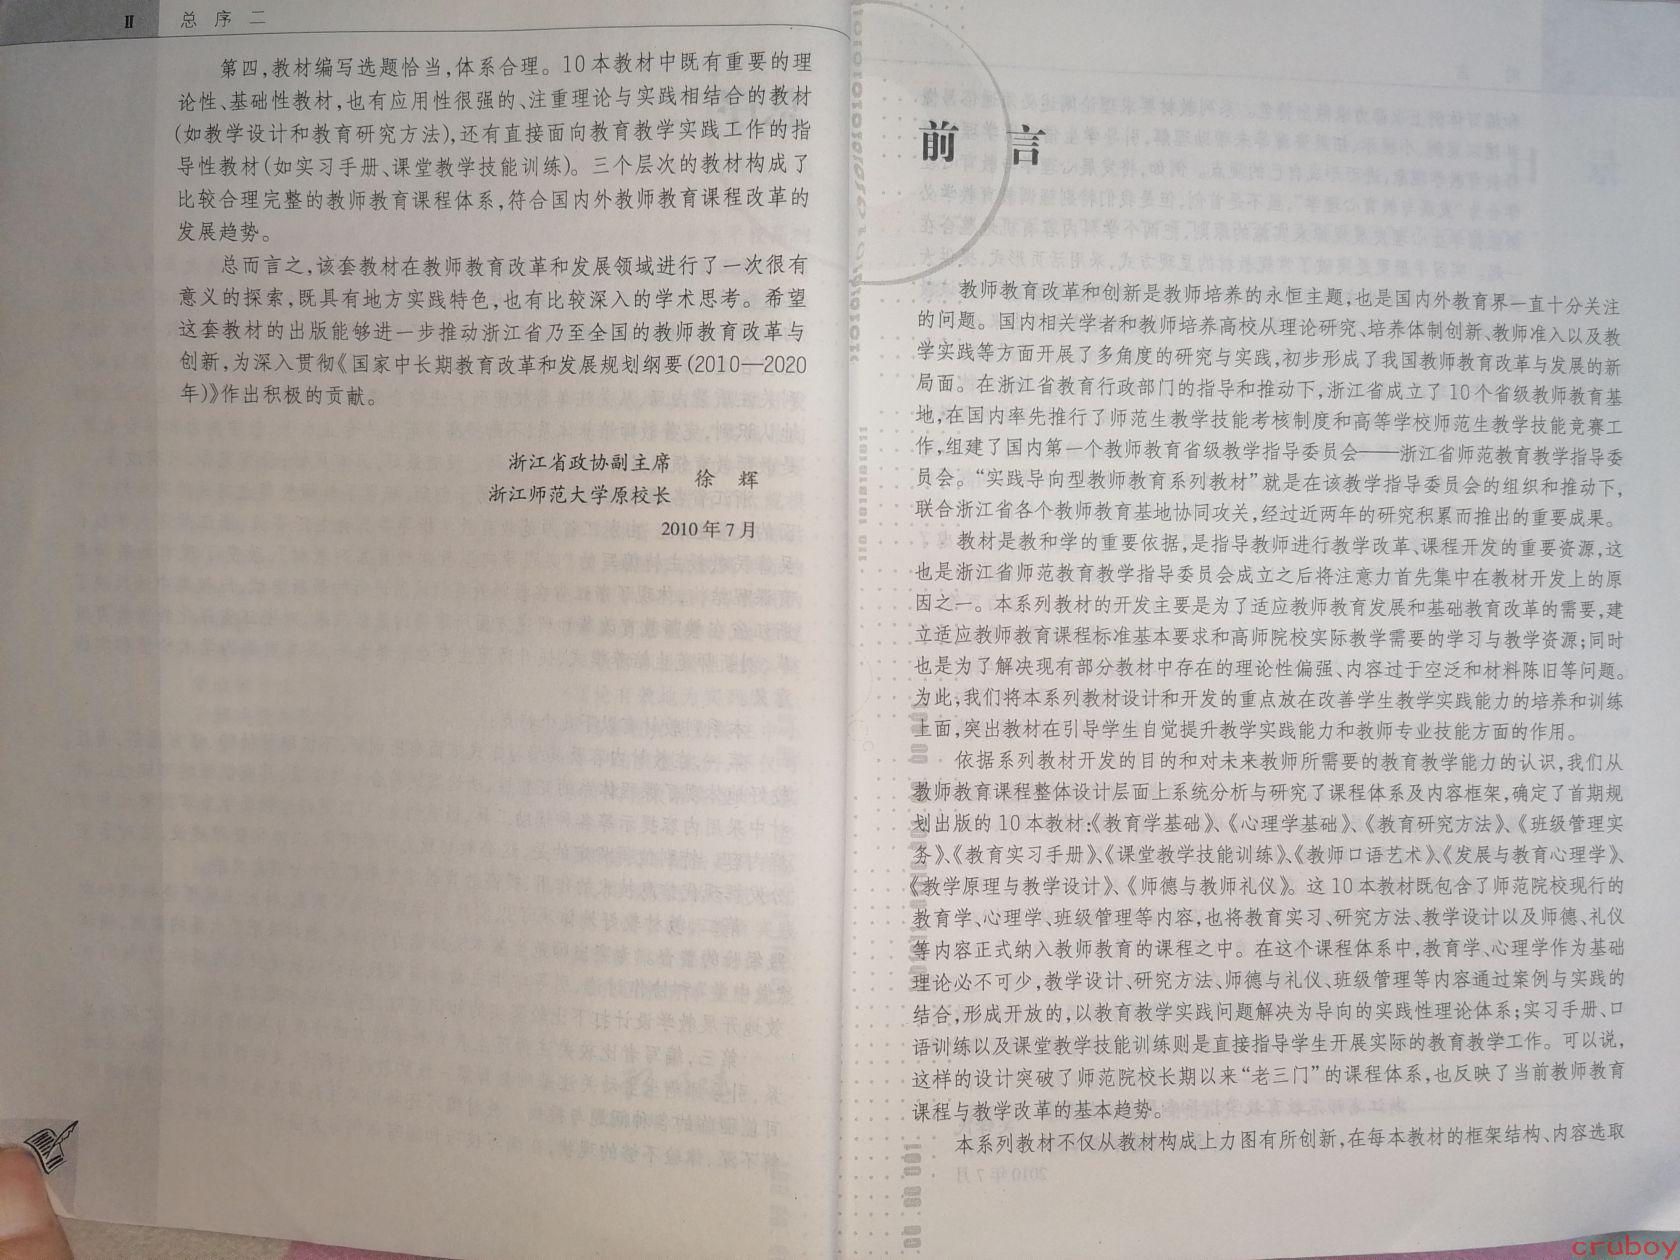 II 总 序 二
第四,教材编写选题恰当,体系合理。10本教材中既有重要的理
论性、基础性教材,也有应用性很强的、注重理论与实践相结合的教材
(如教学设计和教育研究方法),还有直接面向教育教学实践工作的指
导性教材(如实习手册、课堂教学技能训练)。三个层次的教材构成了
比较合理完整的教师教育课程体系,符合国内外教师教育课程改革的
发展趋势。
总而言之,该套教材在教师教育改革和发展领域进行了一次很有
意义的探索,既具有地方实践特色,也有比较深入的学术思考。希望
这套教材的出版能够进一步推动浙江省乃至全国的教师教育改革与
创新,为深入贯彻《国家中长期教育改革和发展规划纲要(2010—2020
年)》作出积极的贡献。
浙江省政协副主席
浙江师范大学原校长
徐 辉
2010年7月
前 言
教师教育改革和创新是教师培养的永恒主题,也是国内外教育界一直十分关注
的问题。国内相关学者和教师培养高校从理论研究、培养体制创新、教师准入以及教
学实践等方面开展了多角度的研究与实践,初步形成了我国教师教育改革与发展的新
局面。在浙江省教育行政部门的指导和推动下,浙江省成立了10个省级教师教育基
地,在国内率先推行了师范生教学技能考核制度和高等学校师范生教学技能竞赛工
作,组建了国内第一个教师教育省级教学指导委员会——浙江省师范教育教学指导委
员会。“实践导向型教师教育系列教材”就是在该教学指导委员会的组织和推动下,
联合浙江省各个教师教育基地协同攻关,经过近两年的研究积累而推出的重要成果。
教材是教和学的重要依据,是指导教师进行教学改革、课程开发的重要资源,这
也是浙江省师范教育教学指导委员会成立之后将注意力首先集中在教材开发上的原
因之一。本系列教材的开发主要是为了适应教师教育发展和基础教育改革的需要,建
立适应教师教育课程标准基本要求和高师院校实际教学需要的学习与教学资源;同时
也是为了解决现有部分教材中存在的理论性偏强、内容过于空泛和材料陈旧等问题。
为此,我们将本系列教材设计和开发的重点放在改善学生教学实践能力的培养和训练
上面,突出教材在引导学生自觉提升教学实践能力和教师专业技能方面的作用。
依据系列教材开发的目的和对未来教师所需要的教育教学能力的认识,我们从
教师教育课程整体设计层面上系统分析与研究了课程体系及内容框架,确定了首期规
划出版的10本教材:《教育学基础》、《心理学基础》、《教育研究方法》、《班级管理实
务》、《教育实习手册》、《课堂教学技能训练》、《教师口语艺术》、《发展与教育心理学》、
《教学原理与教学设计》、《师德与教师礼仪》。这10本教材既包含了师范院校现行的
教育学、心理学、班级管理等内容,也将教育实习、研究方法、教学设计以及师德、礼仪
等内容正式纳入教师教育的课程之中。在这个课程体系中,教育学、心理学作为基础
理论必不可少,教学设计、研究方法、师德与礼仪、班级管理等内容通过案例与实践的
结合,形成开放的,以教育教学实践问题解决为导向的实践性理论体系;实习手册、口
语训练以及课堂教学技能训练则是直接指导学生开展实际的教育教学工作。可以说,
这样的设计突破了师范院校长期以来“老三门”的课程体系,也反映了当前教师教育
课程与教学改革的基本趋势。
本系列教材不仅从教材构成上力图有所创新,在每本教材的框架结构、内容选取
cruboy